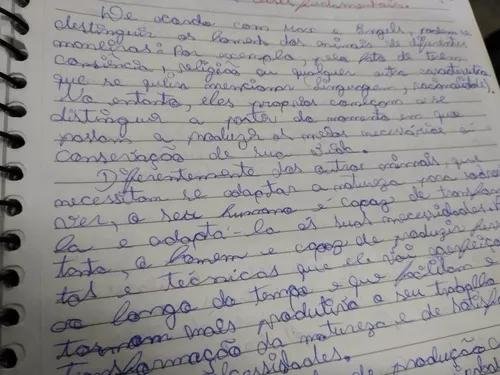 fundamentais.
De acordo com Marx e Engels, podem se
distinguir os homens dos animais de diferentes
maneiras: Por exemplo, pelo fato de terem
consciência, religião ou qualquer outra característica
que se queira mencionar (linguagem, racionalidade).
No entanto, eles próprios começam a se
distinguir a partir do momento em que
passam a produzir os meios necessários à
conservação de sua vida.
Diferentemente dos outros animais, que
necessitam se adaptar a natureza para sobre
viver, o ser humano é capaz de transforma
la e adaptá-la às suas necessidades.
tanto, o homem é capaz de produzir
tas e técnicas que ele vão
ao longo do tempo e que facilitam e
tornam mais produtivo o seu trabalho
transformação da natureza e de
necessidades.
de produção